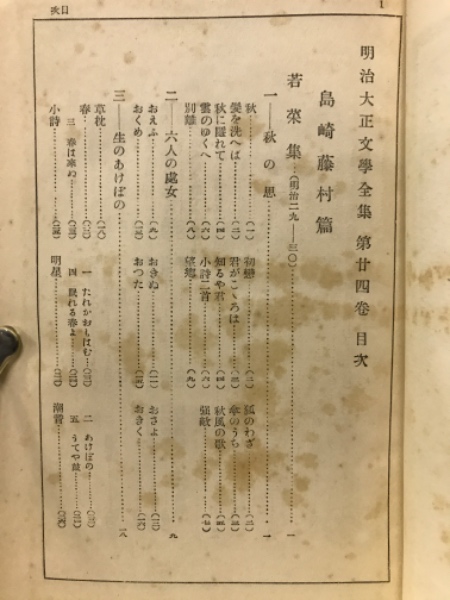 目次
1
明治大正文學全集 第廿四卷 目次
島崎藤村篇
若菜集…(明治二九—三〇)…一
一——秋の思…一
秋…(一) 初戀…(二) 狐のわざ…(二)
髮を洗へば…(二) 君がこゝろは…(三) 傘のうち…(三)
秋に隱れて…(四) 知るや君…(四) 秋風の歌…(五)
雲のゆくへ…(六) 小詩二首…(六) 強敵…(七)
別離…(八) 望郷…(九)
二——六人の處女…九
おえふ…(九) おきぬ…(一一) おさよ…(一二)
おくめ…(一四) おつた…(一五) おきく…(一六)
三——生のあけぼの…一八
草枕…(一八)
春…(二一) 一 たれかおもはむ… 二 あけぼの…
三 春は來ぬ… 四 眠れる春よ… 五 うてや鼓…
小詩… 明星… 潮音…